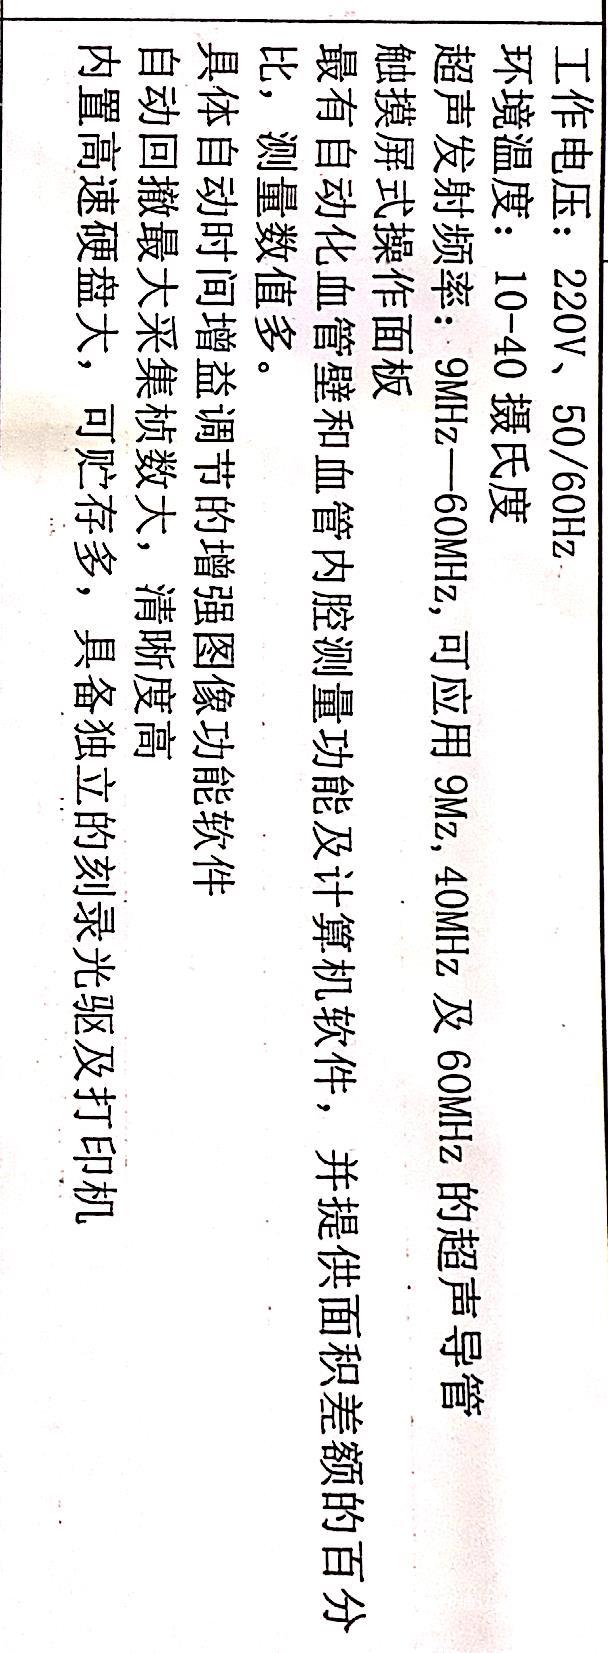 工作电压： 220V、50/60Hz
环境温度： 10-40 摄氏度
超声发射频率：9MHz—60MHz,可应用 9Mz,40MHz 及 60MHz 的超声导管
触摸屏式操作面板
最有自动化血管壁和血管内腔测量功能及计算机软件， 并提供面积差额的百分
比，测量数值多。
具体自动时间增益调节的增强图像功能软件
自动回撤最大采集桢数大，清晰度高
内置高速硬盘大，可贮存多，具备独立的刻录光驱及打印机